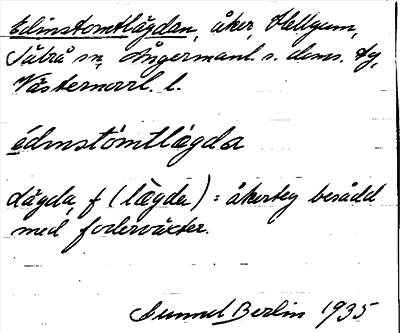 Edinstomtlägdan, åker, Hellgum,
Säbrå sn, Ångermanl. s. doms. tg,
Västernorrl. l.
édɩnstòmtlɑ̀gda
Lägda, f (lägda) = åkerteg besådd
med foderväxter.
Gunnel Berlin 1935